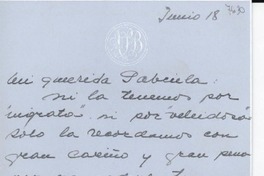 Junio 18
Mi querida Pabcula:
ni la tenemos por
"ingrata" ni por veleidosa
solo la recordamos con
gran cariño y gran pena